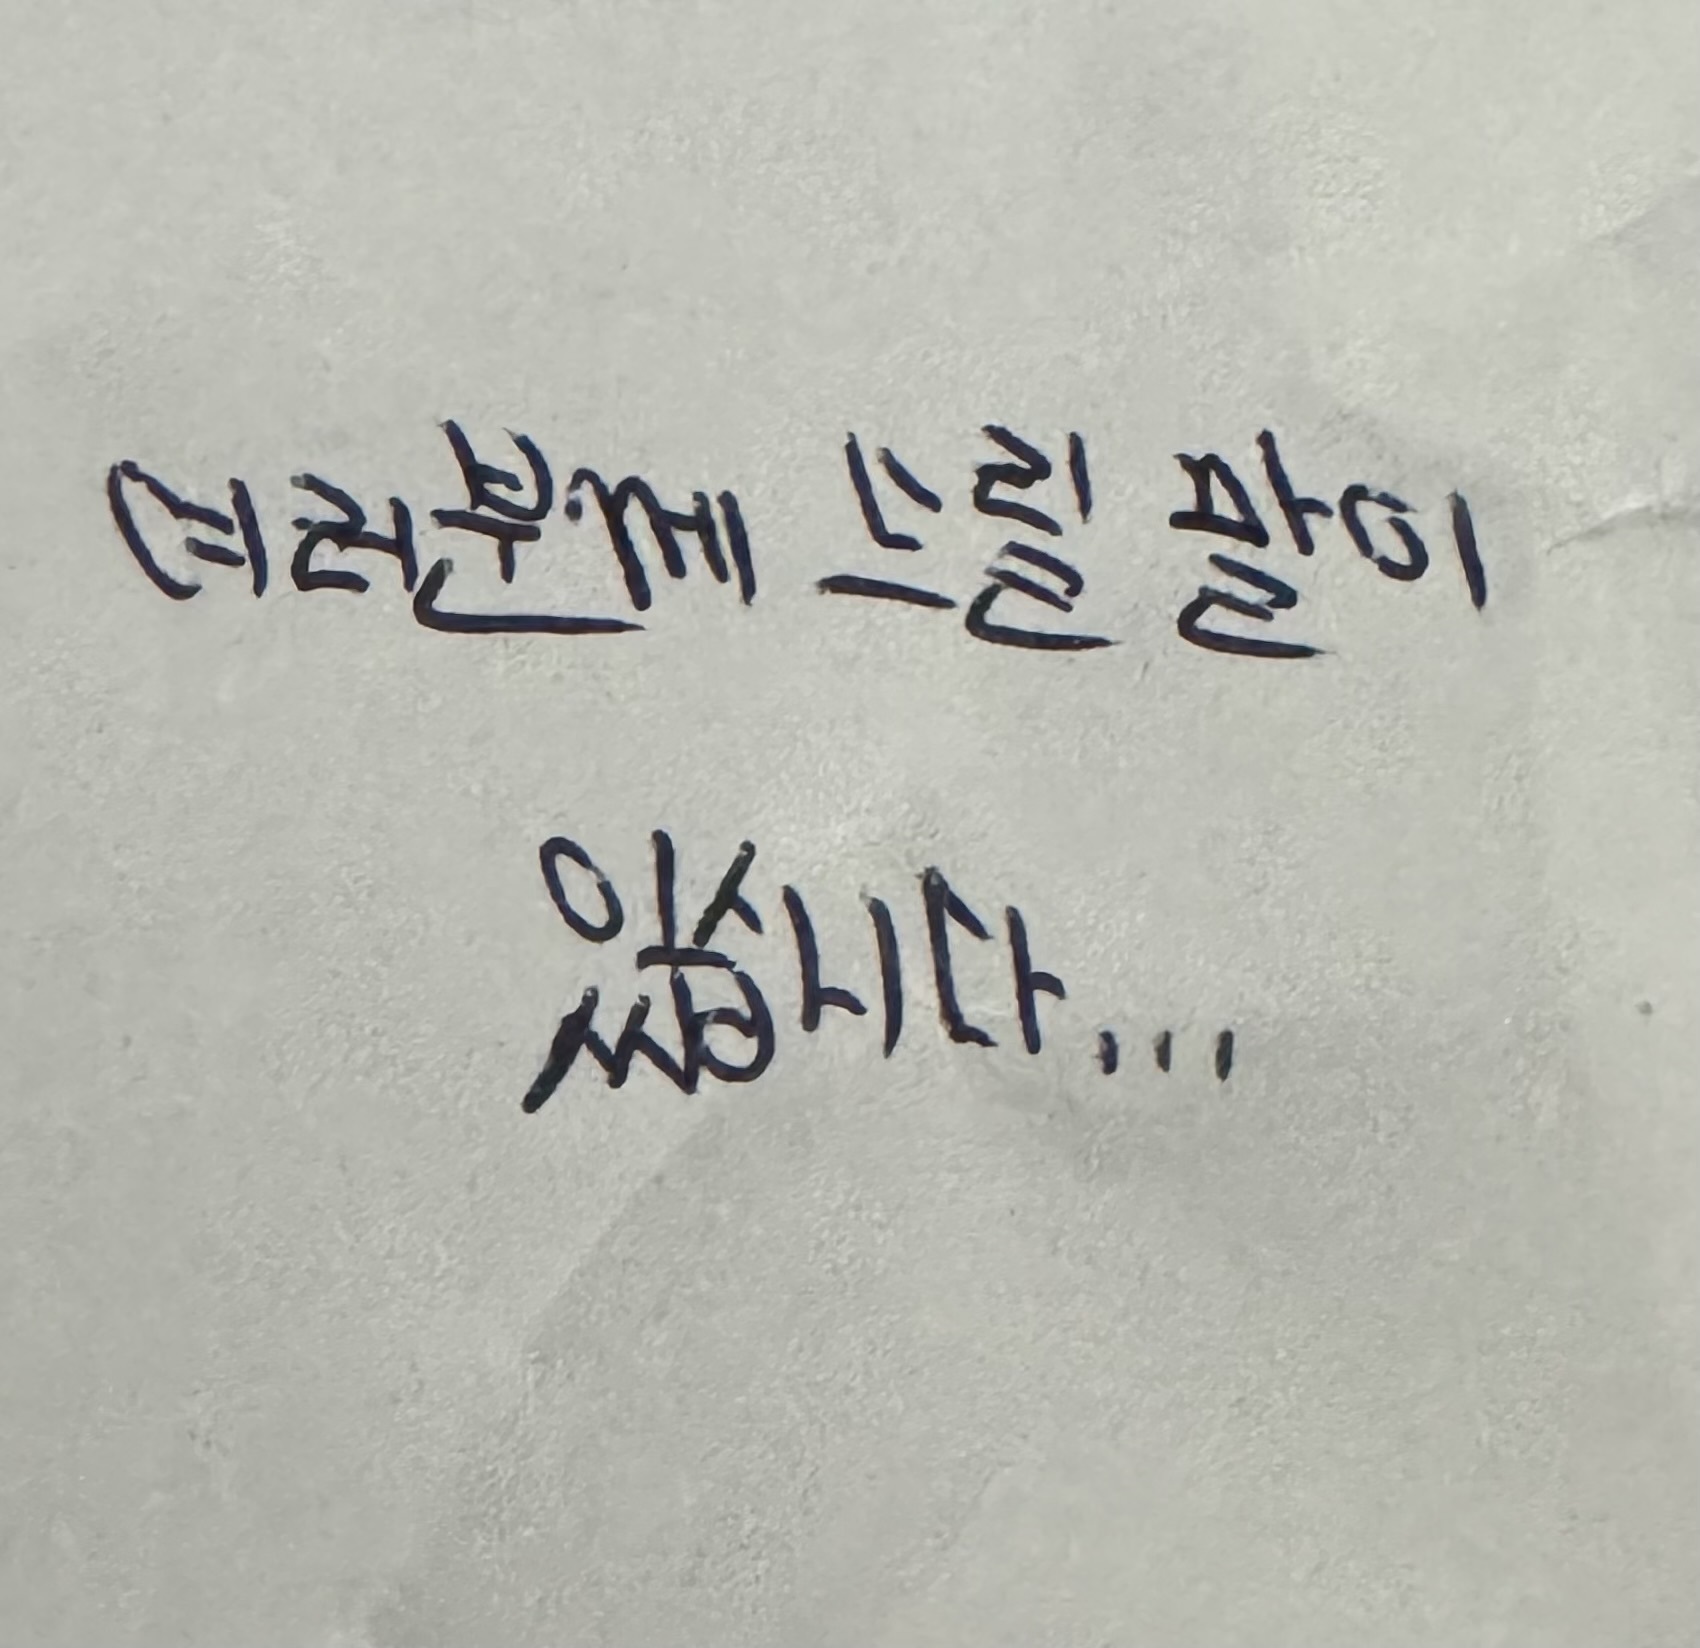 여러분께 드릴 말이
있습니다...